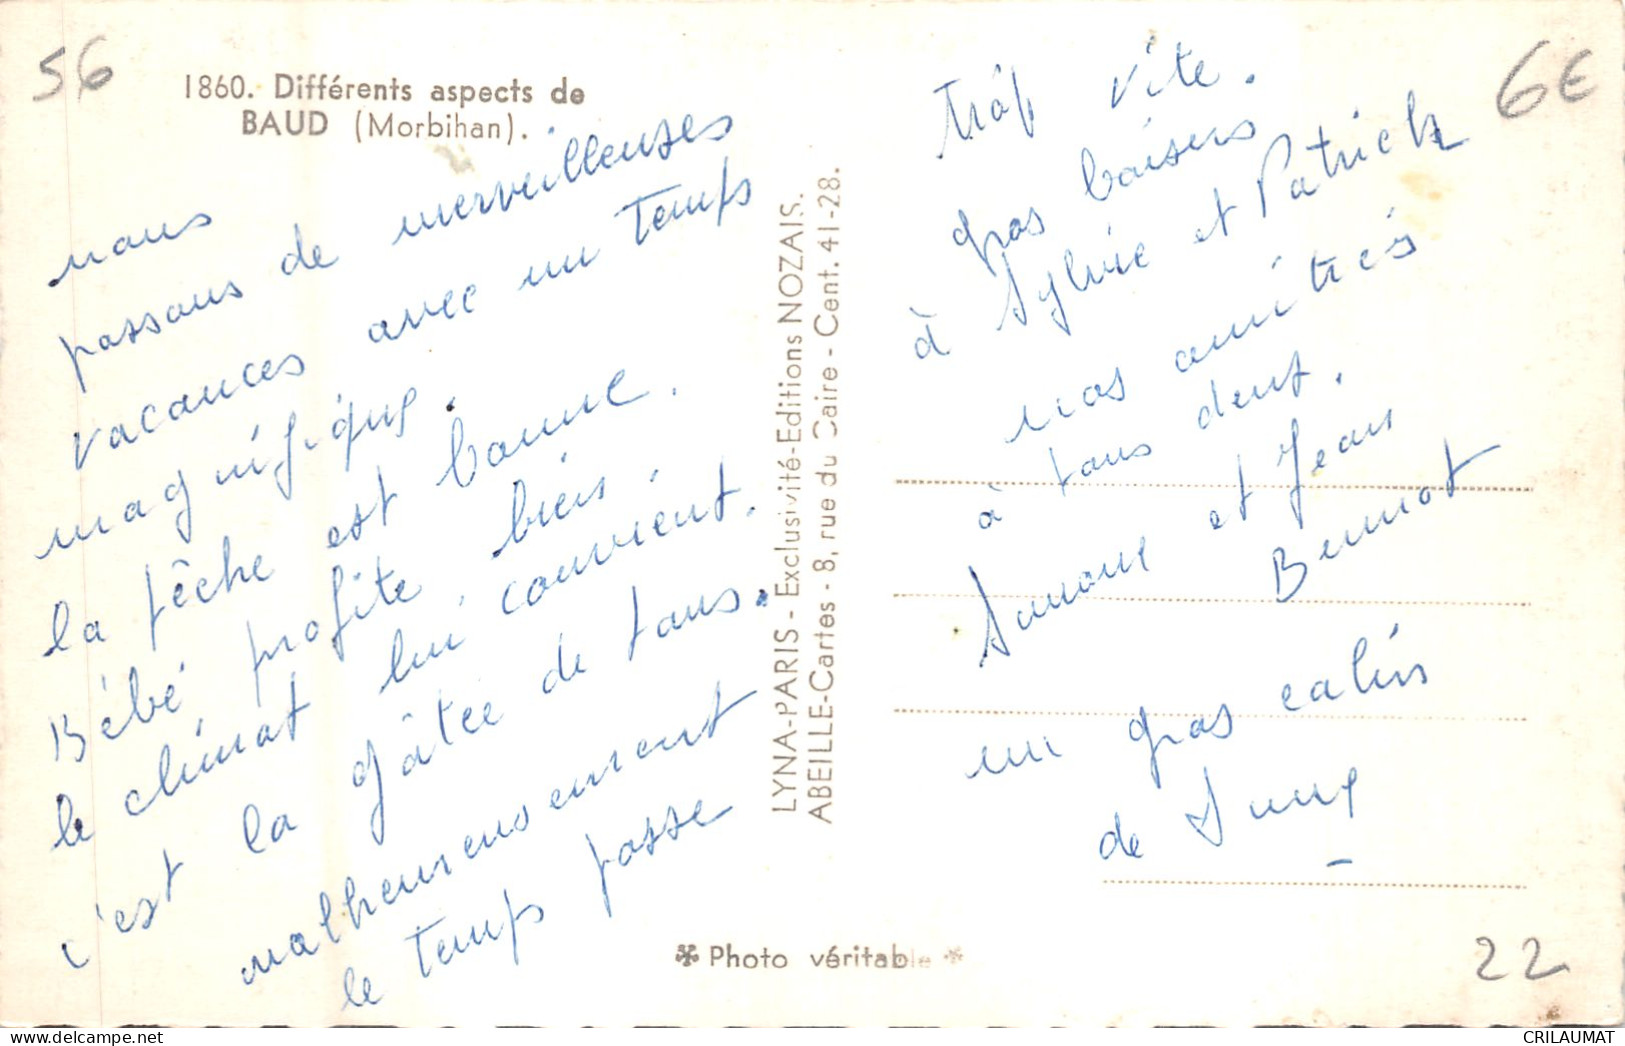 56
1860. Différents aspects de
BAUD (Morbihan).
nous
passons de merveilleuses
vacances avec un temps
magnifique.
la pêche est bonne.
Bébé profite bien.
le climat lui convient.
c'est la gâtée de tous.
malheureusement
le temps passe
LYNA-PARIS - Exclusivité-Editions NOZAIS.
ABEILLE-Cartes - 8, rue du Caire - Cent. 41-28.
✻ Photo véritable ✻
6€
trop vite.
gros baisers
à Sylvie et Patrick
nos amitiés
à tous deux.
Simone et Jean
un gros calin
de
22
CRILAUMAT